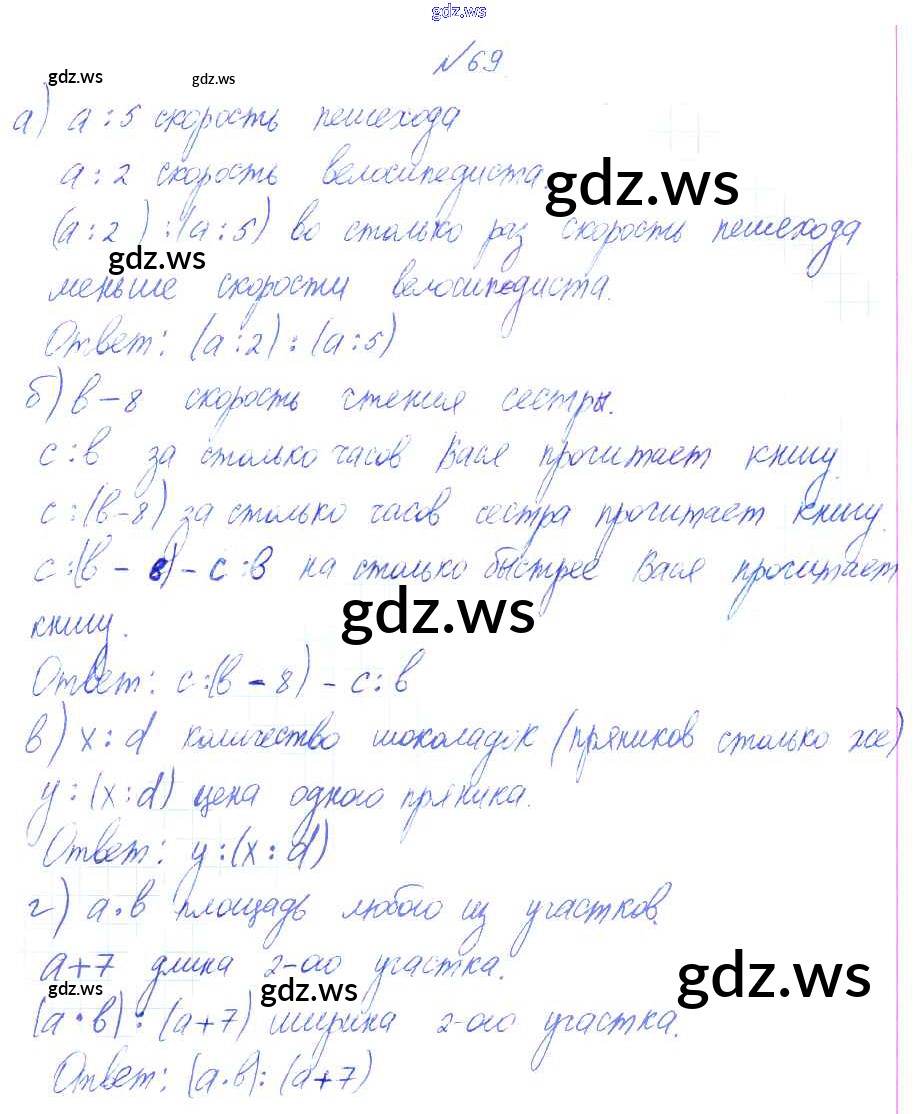 gdz.ws
№69.
gdz.ws gdz.ws
а) a : 5 скорость пешехода
a : 2 скорость велосипедиста.
gdz.ws
(a : 2) : (a : 5) во столько раз скорость пешехода
gdz.ws
меньше скорости велосипедиста.
Ответ: (a : 2) : (a : 5)
б) в - 8 скорость чтения сестры.
с : в за столько часов Вася прочитает книгу.
с : (в - 8) за столько часов сестра прочитает книгу.
с : (в - 8) - с : в на столько быстрее Вася прочитает
gdz.ws
книгу.
Ответ: с : (в - 8) - с : в
в) x : d количество шоколадок (пряников столько же)
y : (x : d) цена одного пряника.
Ответ: y : (x : d)
г) a · в площадь любого из участков.
a + 7 длина 2-ого участка.
gdz.ws
gdz.ws gdz.ws
(a · в) : (a + 7) ширина 2-ого участка.
Ответ: (a · в) : (a + 7)